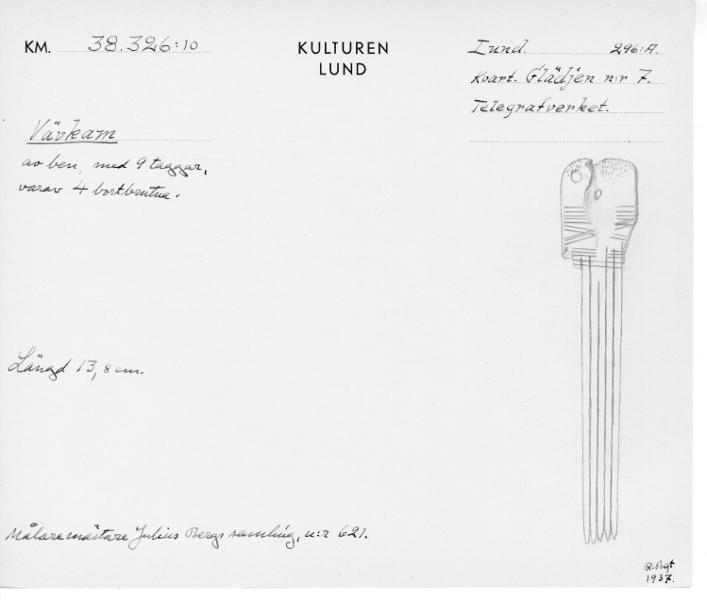 KM. 38.326:10
KULTUREN
LUND
Lund. 296:A.
Kvart. Glädjen n:r 7.
Telegrafverket.
Vävkam
av ben, med 9 taggar,
varav 4 bortbrutna.
Längd 13,8 cm.
Målaremästare Julius Bergs samling, n:r 621.
1937.